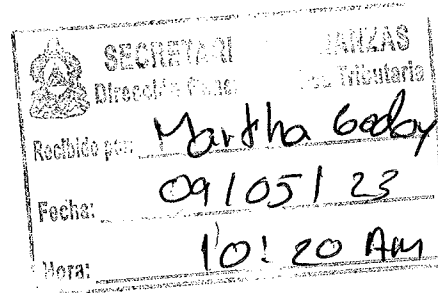 SECRETARI ANZAS
Dirección Tributaria
Recibido por: Martha Godoy
Fecha: 09/05/23
Hora: 10:20 AM